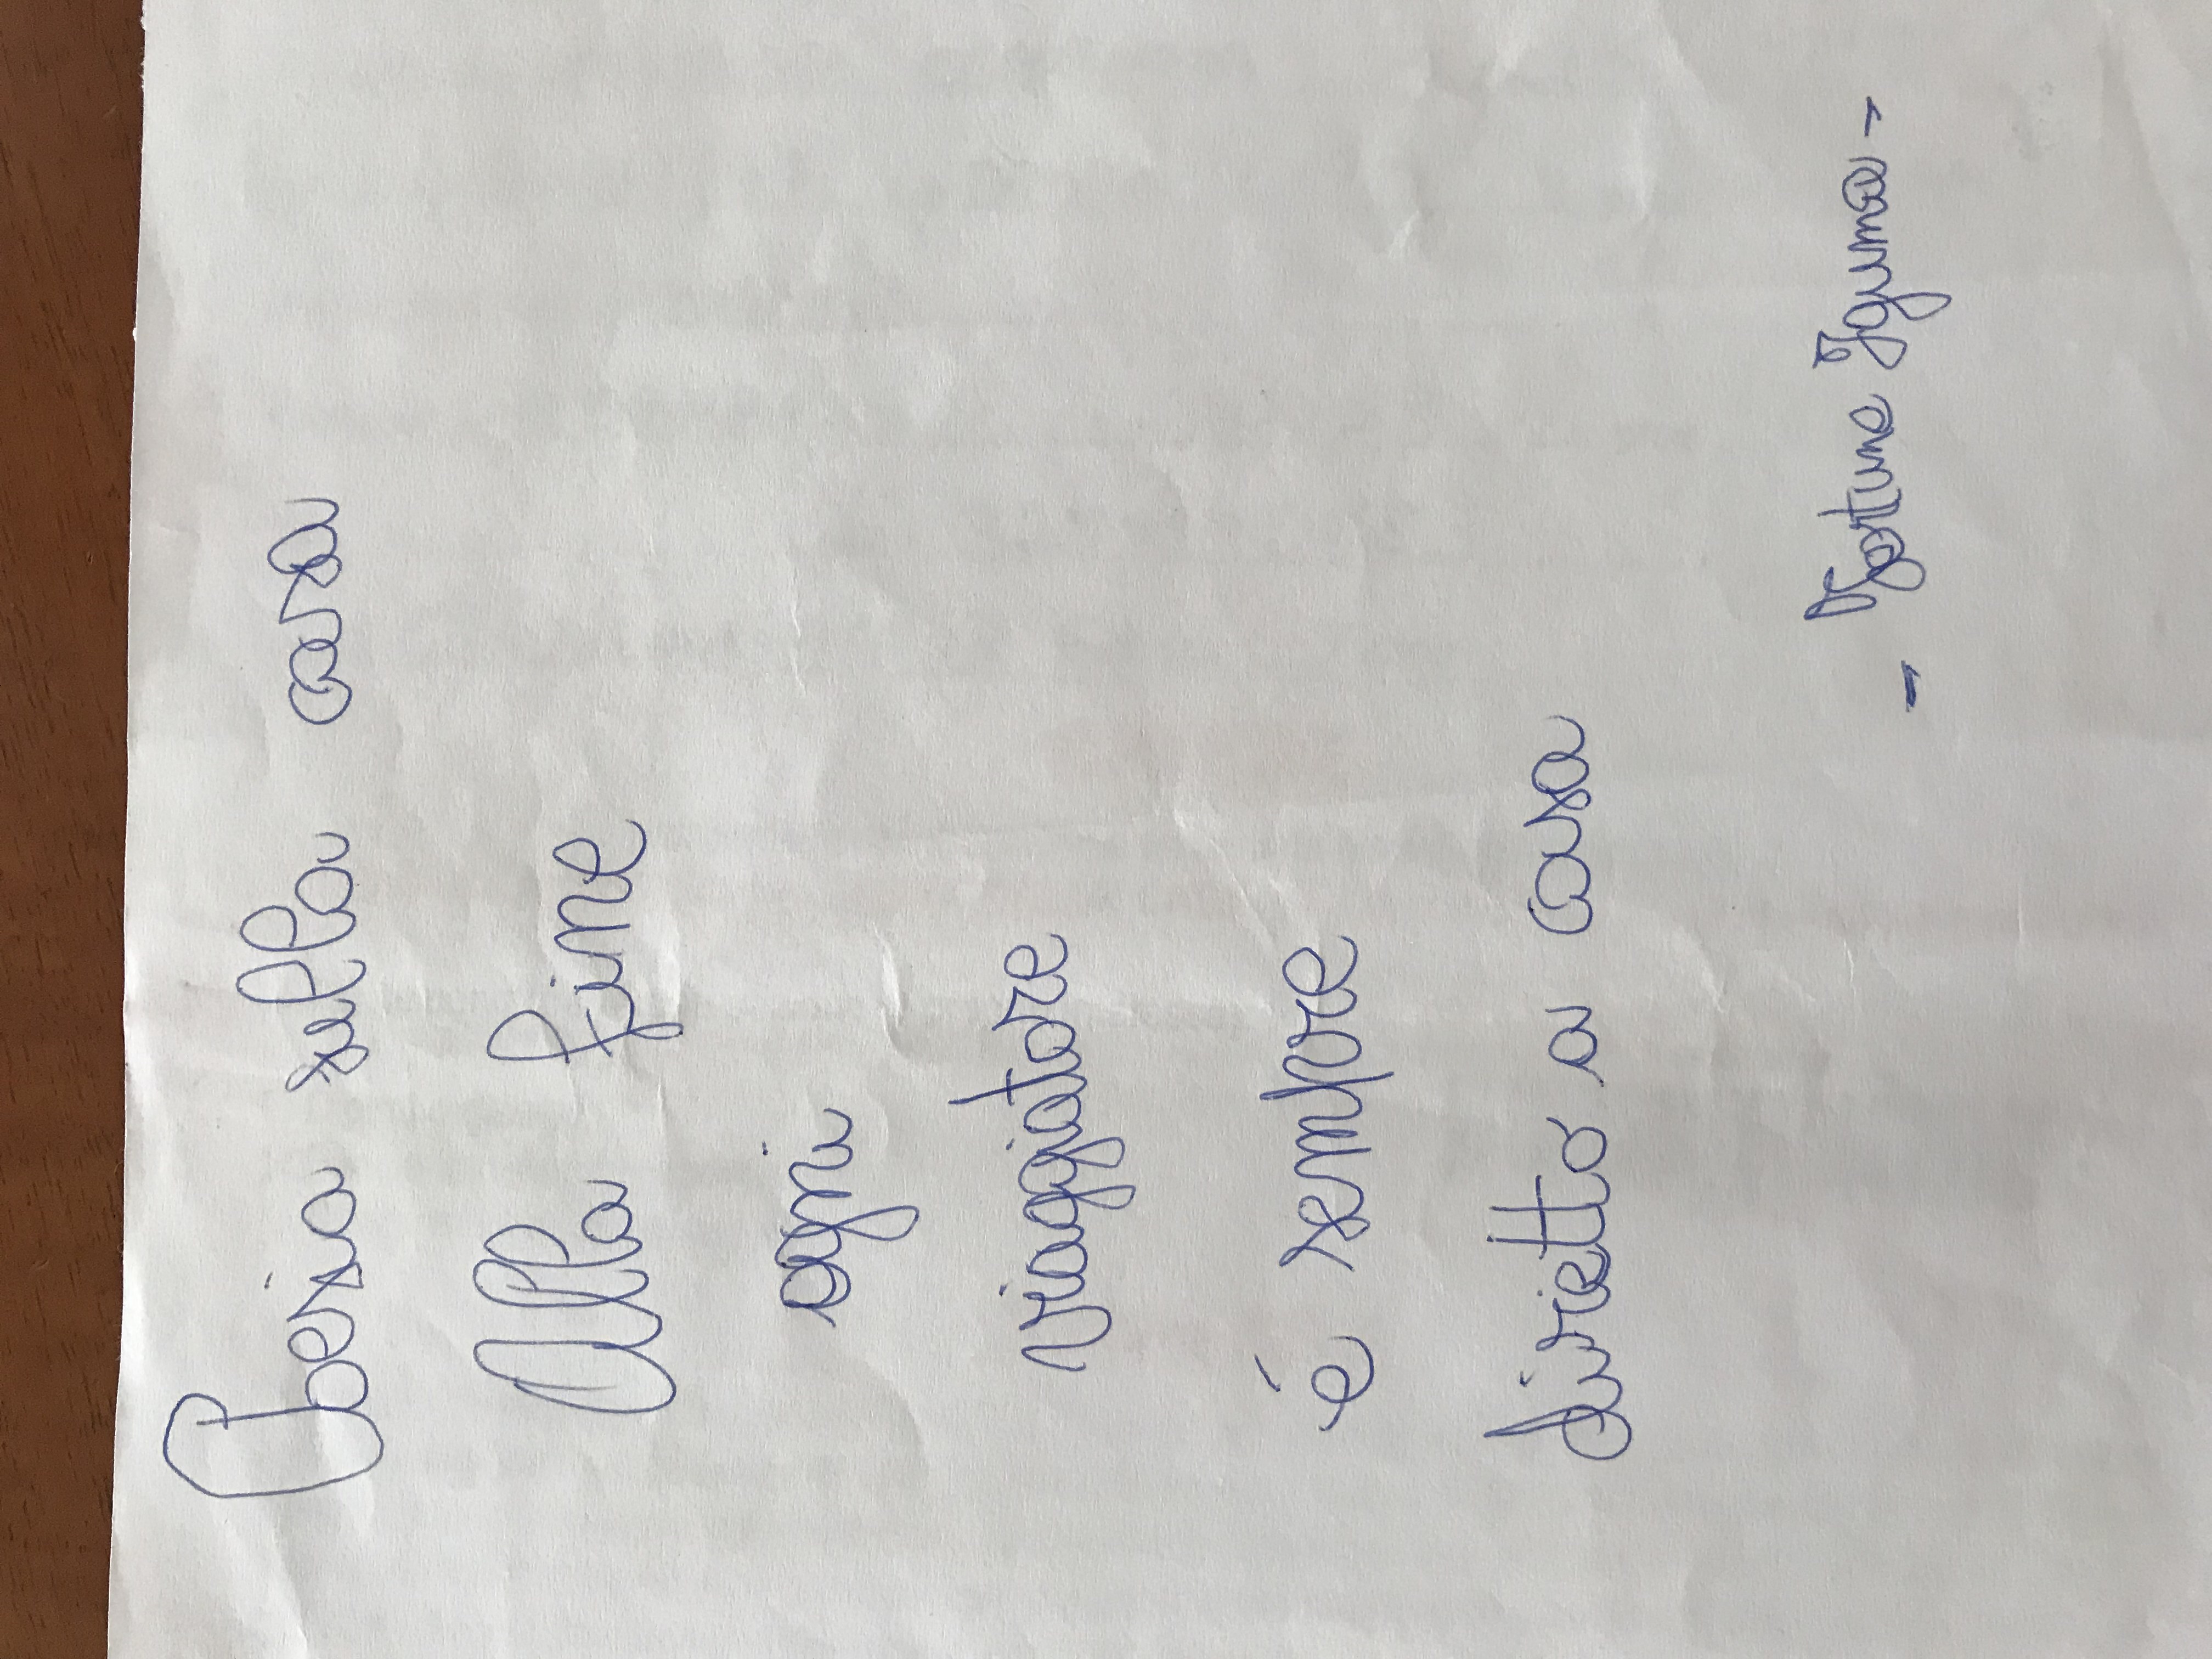 Poesia sulla casa
Alla fine
ogni
viaggiatore
é sempre
diretto a casa
- Fortune Iguma -